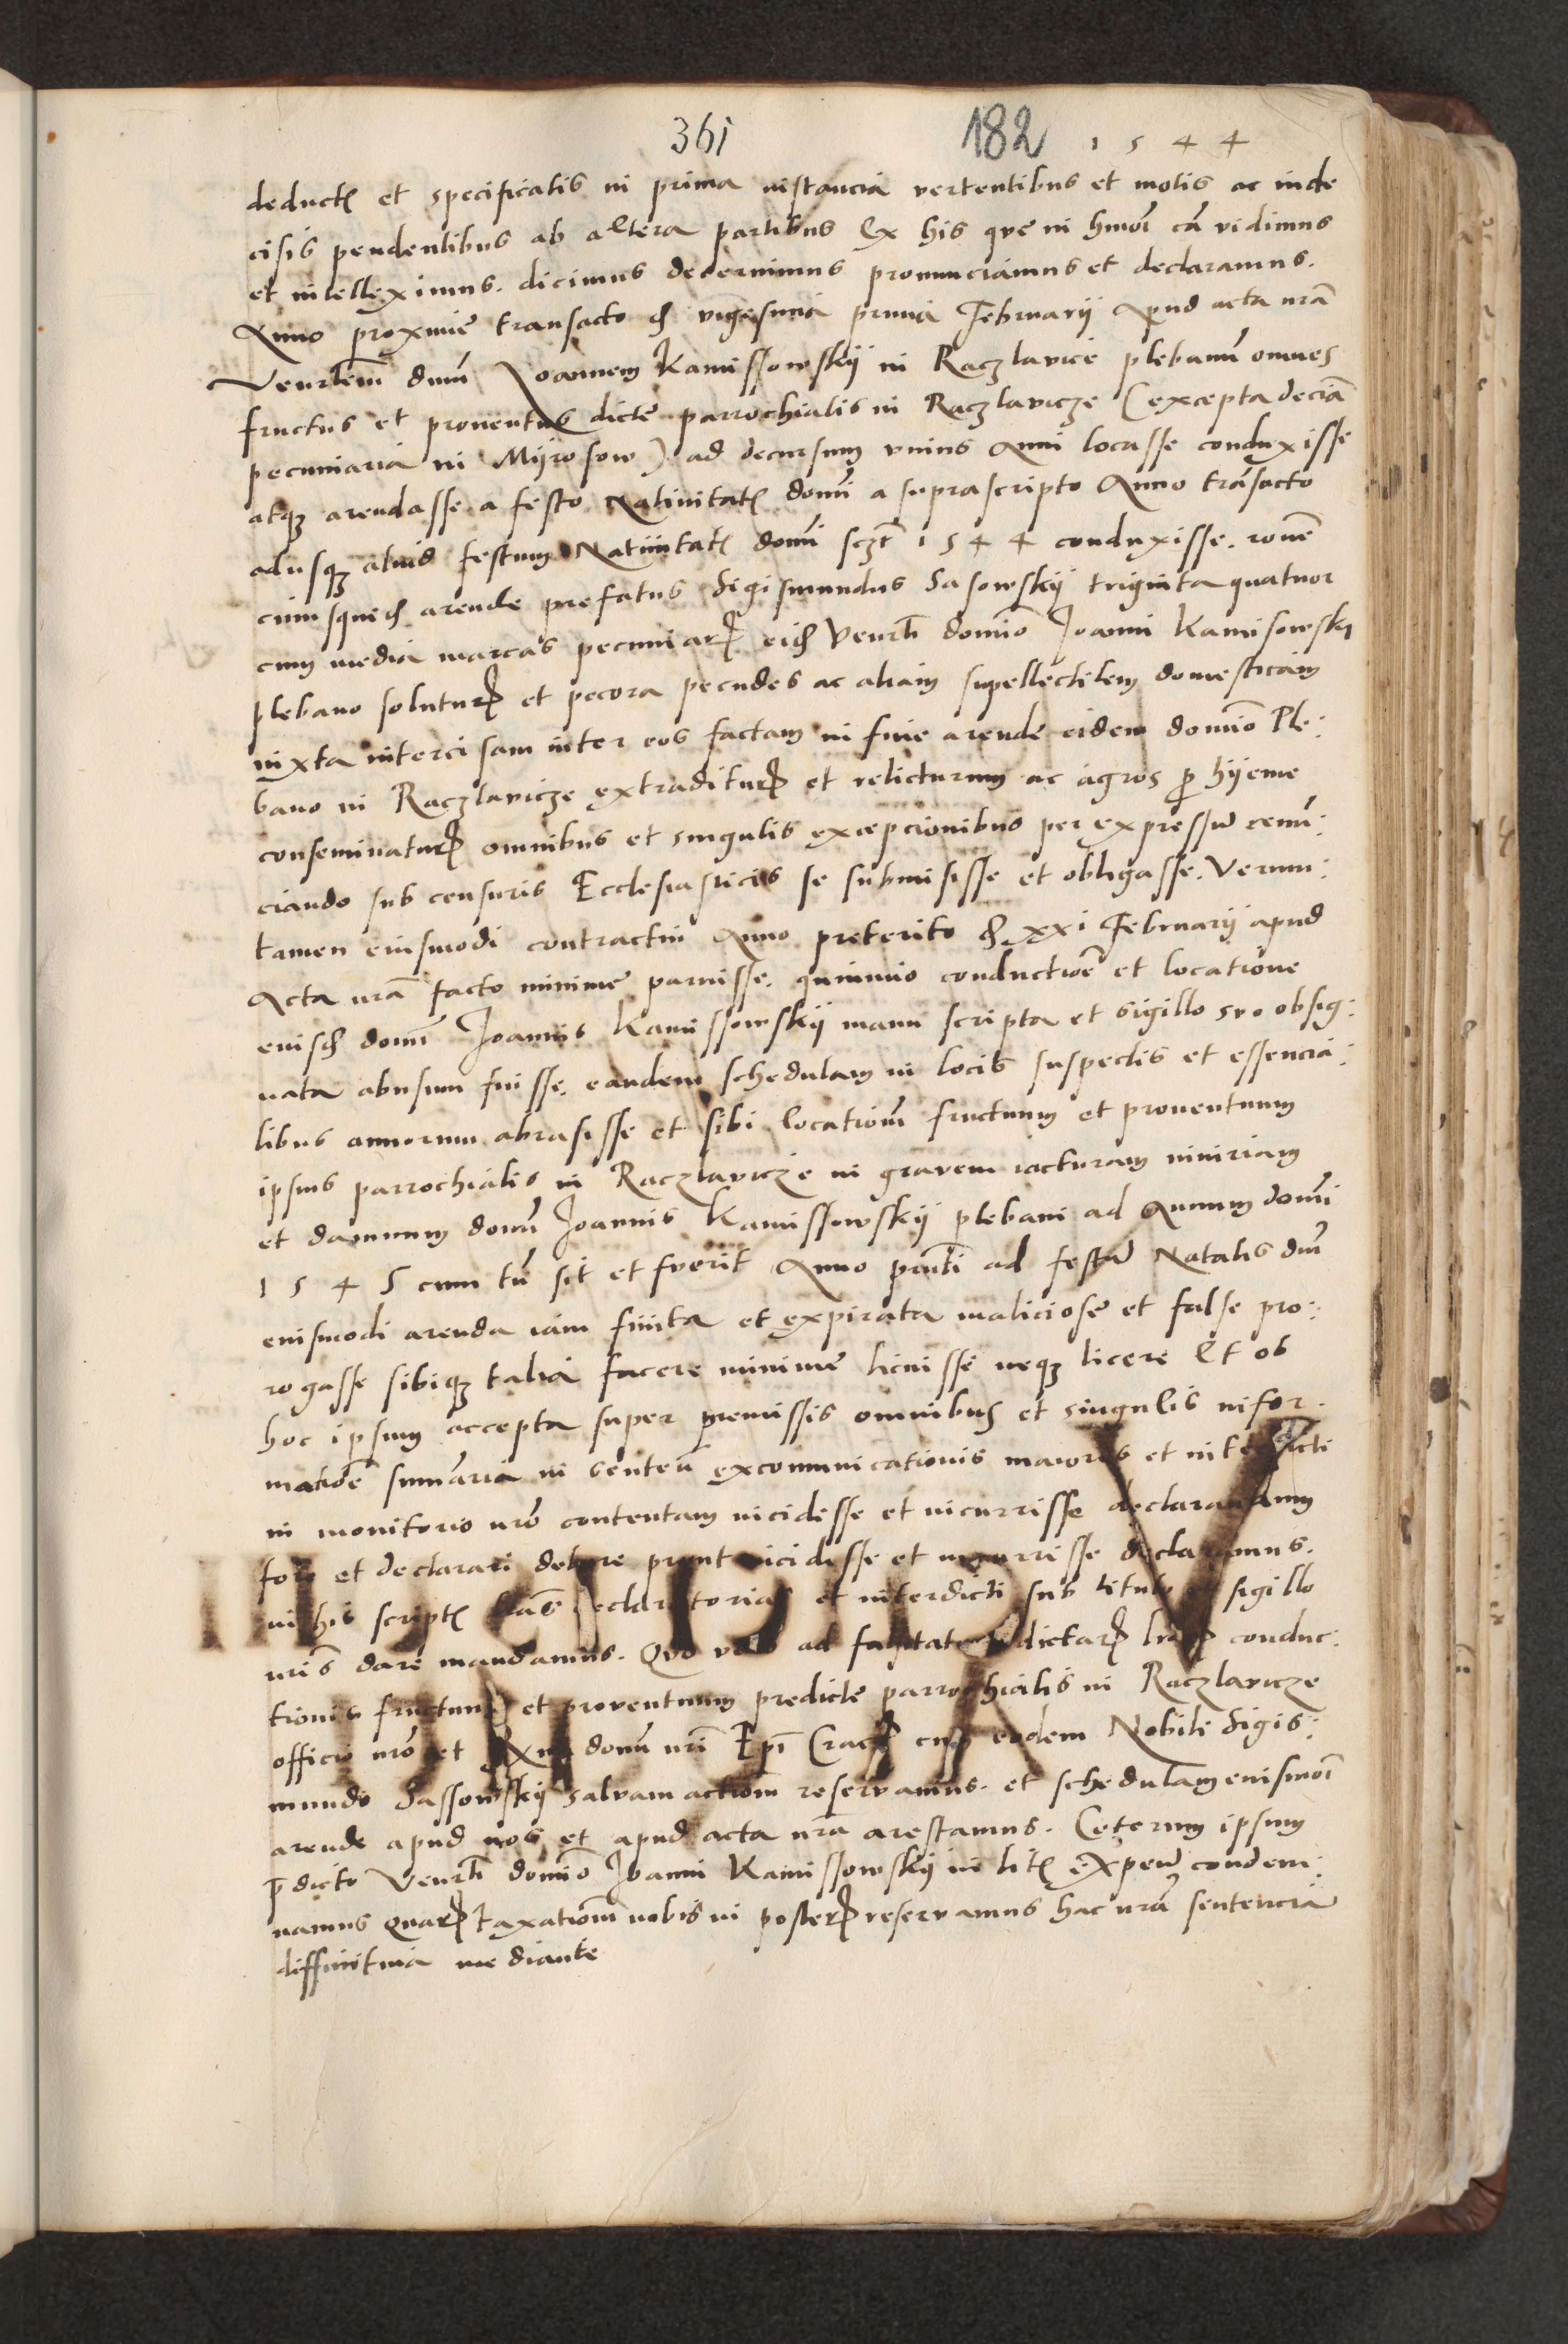 361 182 1544
deduct(is) et specificatis in prima instancia vertentibus et motis ac inde
cisis pendentibus ab altera partibus Ex his que in hmoi cã vidimus
et intelleximus. dicimus decernimus pronunciamus et declaramus.
Anno proxime transacto d vigesima prima Februarii Apud acta nrã
Venrlem dnum Joannem Kamissowskij in Raczlavice plebanũ omnes
fructus et proventus dicte parrochialis in Raczlavicze (excepta deciã
pecuniaria in Mijrosow) ad decursum unius Anni locasse conduxisse
atque arendasse a festo Nativitat(is) domi a suprascripto Anno transacto
adusque aliud festum Nativitat(is) domi sczt 1544 conduxisse. rone
cuiusque d arende prefatus Sigismundus Sasowskij triginta quatuor
cum media marcas pecuniar eid Venrli domino Joanni Kamisowskij
plebano solutur et pecora pecudes ac aliam supellectilem domesticam
iuxta intercisam inter eos factam in fine arende eidem domino Ple:
bano in Raczlavicze extraditur et relicturum ac agros p hyeme
conseminatur omnibus et singulis excepcionibus per expressũ renũ:
ciando sub censuris Ecclesiasticis se submisisse et obligasse. Verum:
tamen eiusmodi contractui Anno preterito d xxi Februarij apud
Acta nrã facto minime paruisse. quinimo conductioẽ et locatione
eiusd domi Joannis Kamissowskij manu scripta et sigillo suo obsig:
nata abusum fuisse. eandem schedulam in locis suspectis et essencia:
libus annorum abrasisse et sibi locationem fructuum et proventuum
ipsius parrochialis in Raczlavicze in gravem iacturam iniuriam
et damnum domi Joannis Kamissowskij plebani ad Annum domi
1545 cum tũ sit et fuerit Anno pñti ad festũ Natalis dni
eiusmodi arenda iam finita et expirata maliciose et false pro:
rogasse sibique talia facere minime licuisse neque licere Et ob
hoc ipsum accepta super premissis omnibus et singulis infor.
matioẽ sumaria in senteñ excomunicationis maioris et interdicti
in monitorio nrõ contentam incidesse et incurrisse declarandum
fore et declarari debere prout incidisse et incurrisse declaramus.
in his script(is) lrãs declaratorias et interdicti sub titulo et sigillo
nris dare mandamus. Quo vero ad falsitatem dictar lrar conduc:
tionis fructuum et proventuum predicte parrochialis in Raczlavicze
officio nrõ et Rxmi domi nri Epi Crac cum eodem Nobili Sigis:
mundo Sassowskij salvam actionem reservamus. et schedulam eiusmoi
arende apud nos et apud acta nra arestamus. Ceterum ipsum
p̃dicto Venrli domino Joanni Kamissowskij in lit(is) expeñ condem:
namus quar taxationem nobis in poster reservamus hac nrã sentencia
diffinitiva mediante